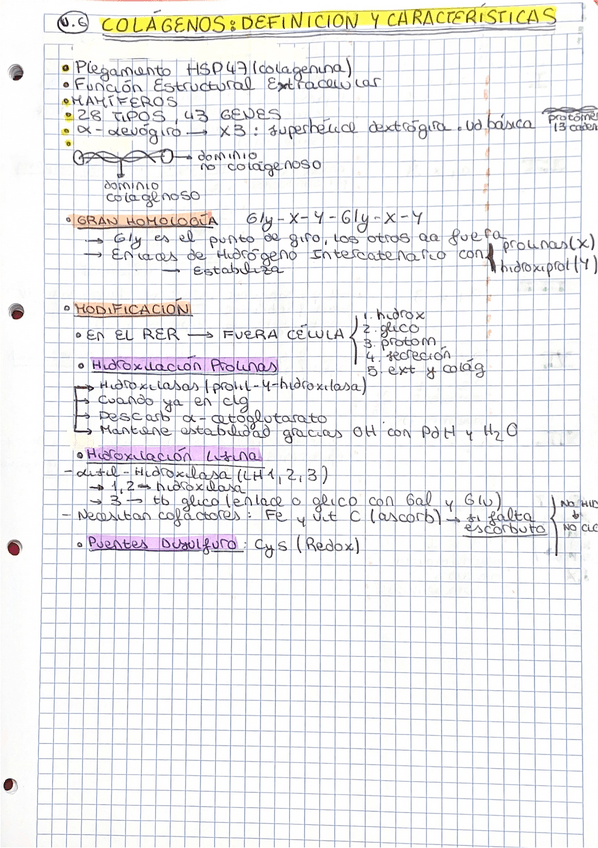 U.6 COLÁGENOS: DEFINICION Y CARACTERÍSTICAS
• Plegamiento HSP47 (colagenina)
• Función Estructural Extracelular
• MAMÍFEROS
• 28 TIPOS, 43 GENES
• α-levógiro → x3: superhélice dextrógira. Ud básica
protóme
13 caden
→ dominio
no colágenoso
dominio
colagenoso
• GRAN HOMOLOGÍA Gly-X-Y-Gly-X-Y
→ Gly es el punto de giro, los otros aa fuera
→ Enlaces de Hidrógeno Intercatenario con
prolinas (X)
hidroxiprol (Y)
→ Estabiliza
• MODIFICACIÓN
• EN EL RER → FUERA CÉLULA
1. hidrox
2. glico
3. protom
4. secreción
5. ext y colág
• Hidroxilación Prolinas
→ Hidroxilasas (prolil-4-hidroxilasa)
→ Cuando ya en clg
→ Descarb α-cetoglutarato
→ Mantiene estabilidad gracias OH con PdH y H2O
• Hidroxilación Lisina
- Lisil-Hidroxilasa (LH1, 2, 3)
→ 1,2 → hidroxilasa
→ 3 → tb glico (enlace o glico con Gal y Glu)
- Necesitan cofactores: Fe y vit C (ascorb) → si falta
escorbuto
NO HID
NO GLC
• Puentes Disulfuro: Cys (Redox)